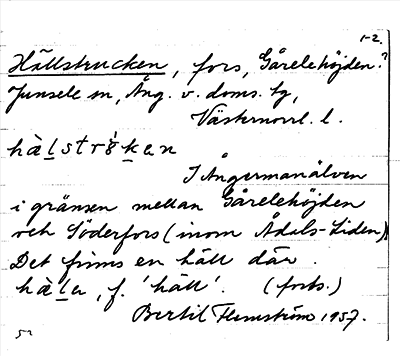 1-2.
Hällstrucken, fors, Gårelehöjden?
Junsele sn, Ång. v. doms. tg,
Västernorrl. l.
hàlstrŏ́kan
I Ångermanälven
i gränsen mellan Gårelehöjden
och Söderfors (inom Ådals-Liden)
Det finns en häll där.
hàla, f. 'häll'. (forts.)
Bertil Flemström 1957.